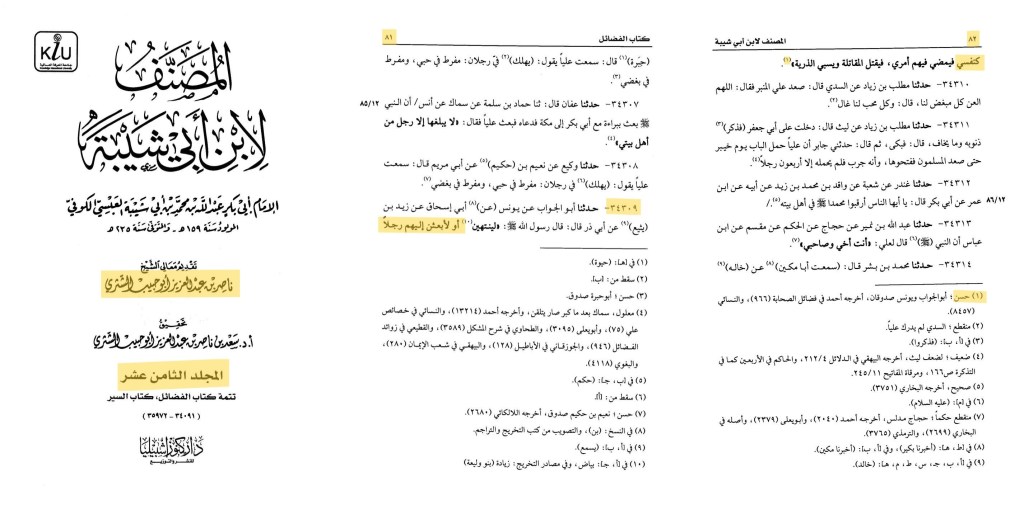 KIU
المصنف
لابن أبي شيبة
الإمام أبي بكر عبد الله بن محمد بن أبي شيبة العبسي الكوفي
المولود سنة ١٥٩ هـ - والمتوفى سنة ٢٣٥ هـ
تقديم معالي الشيخ
ناصر بن عبد العزيز أبو حبيب الشثري
تحقيق
أ.د. سعد بن ناصر بن عبد العزيز أبو حبيب الشثري
المجلد الثامن عشر
تتمة كتاب الفضائل، كتاب السير
(٣٤٠٩١ - ٣٥٩٧٢)
دار كنوز إشبيليا
للنشر والتوزيع
٨١
كتاب الفضائل
(حيرة)(١) قال: سمعت علياً يقول: (يهلك)(٢) فيّ رجلان: مفرط في حبي، ومفرط
في بغضي(٣).
٣٤٣٠٧- حدثنا عفان قال: ثنا حماد بن سلمة عن سماك عن أنس/ أن النبي
٨٥/١٢
ﷺ بعث ببراءة مع أبي بكر إلى مكة فدعاه فبعث علياً فقال: «لا يبلغها إلا رجل من
أهل بيتي»(٤).
٣٤٣٠٨- حدثنا وكيع عن نعيم بن (حكيم)(٥) عن أبي مريم قال: سمعت
علياً يقول: (يهلك)(٦) في رجلان: مفرط في حبي، ومفرط في بغضي(٧).
٣٤٣٠٩- حدثنا أبو الجواب عن يونس (عن)(٨) أبي إسحاق عن زيد بن
(يثيع)(٩) عن أبي ذر قال: قال رسول الله ﷺ: «لينتهين(١٠) أو لأبعثن إليهم رجلاً
(١) في [هـ]: (حيوة).
(٢) سقط من: [ب].
(٣) حسن؛ أبوحيرة صدوق.
(٤) معلول، سماك بعد ما كبر صار يتلقن، وأخرجه أحمد (١٣٢١٤)، والنسائي في خصائص
علي (٧٥)، وأبويعلى (٣٠٩٥)، والطحاوي في شرح المشكل (٣٥٨٩)، والقطيعي في زوائد
الفضائل (٩٤٦)، والجوزقاني في الأباطيل (١٢٨)، والبيهقي في شعب الإيمان (٢٨٠)،
والبغوي (٤١١٨).
(٥) في [ب، جـ]: (حكم).
(٦) سقط من: [أ].
(٧) حسن؛ نعيم بن حكيم صدوق، أخرجه اللالكائي (٢٦٨٠).
(٨) في النسخ: (بن)، والتصويب من كتب التخريج والتراجم.
(٩) في [أ، ب]: (يسمع).
(١٠) في [أ، جـ]: بياض، وفي مصادر التخريج: زيادة (بنو وليعة)
المصنف لابن أبي شيبة
٨٢
كنفسي فيمضي فيهم أمري، فيقتل المقاتلة ويسبي الذرية»(١).
٣٤٣١٠- حدثنا مطلب بن زياد عن السدي قال: صعد علي المنبر فقال: اللهم
العن كل مبغض لنا، قال: وكل محب لنا غال(٢).
٣٤٣١١- حدثنا مطلب بن زياد عن ليث قال: دخلت على أبي جعفر (فذكر)(٣)
ذنوبه وما يخاف، قال: فبكى، ثم قال: حدثني جابر أن علياً حمل الباب يوم خيبر
حتى صعد المسلمون ففتحوها، وأنه جرب فلم يحمله إلا أربعون رجلاً(٤).
٣٤٣١٢- حدثنا غندر عن شعبة عن واقد بن محمد بن زيد عن أبيه عن ابن
عمر عن أبي بكر قال: يا أيها الناس أرقبوا محمدا ﷺ في أهل بيته(٥)./
٨٦/١٢
٣٤٣١٣- حدثنا عبد الله بن نمير عن حجاج عن الحكم عن مقسم عن ابن
عباس أن النبي (ﷺ)(٦) قال لعلي: «أنت أخي وصاحبي»(٧).
٣٤٣١٤- حدثنا محمد بن بشر قال: (سمعت أبا مكين)(٨) عن (خاله)(٩)
(١) حسن؛ أبوالجواب ويونس صدوقان، أخرجه أحمد في فضائل الصحابة (٩٦٦)، والنسائي
(٨٤٥٧).
(٢) منقطع؛ السدي لم يدرك علياً.
(٣) في [أ، ب]: (فذكروا).
(٤) ضعيف؛ لضعف ليث، أخرجه البيهقي في الدلائل ٢١٢/٤، والحاكم في الأربعين كما في
التذكرة ص١٦٦، ومرقاة المفاتيح ٢٤٥/١١.
(٥) صحيح، أخرجه البخاري (٣٧٥١).
(٦) في [م]: (عليه السلام).
(٧) منقطع حكماً؛ حجاج مدلس، أخرجه أحمد (٢٠٤٠)، وأبويعلى (٢٣٧٩)، وأصله في
البخاري (٢٦٩٩)، والترمذي (٣٧٦٥).
(٨) في [ط، هـ]: (أخبرنا بكير)، وفي [أ، ب]: (أخبرنا مكين).
(٩) في [أ، ب، جـ، س، ط، م، هـ]: (خالد).